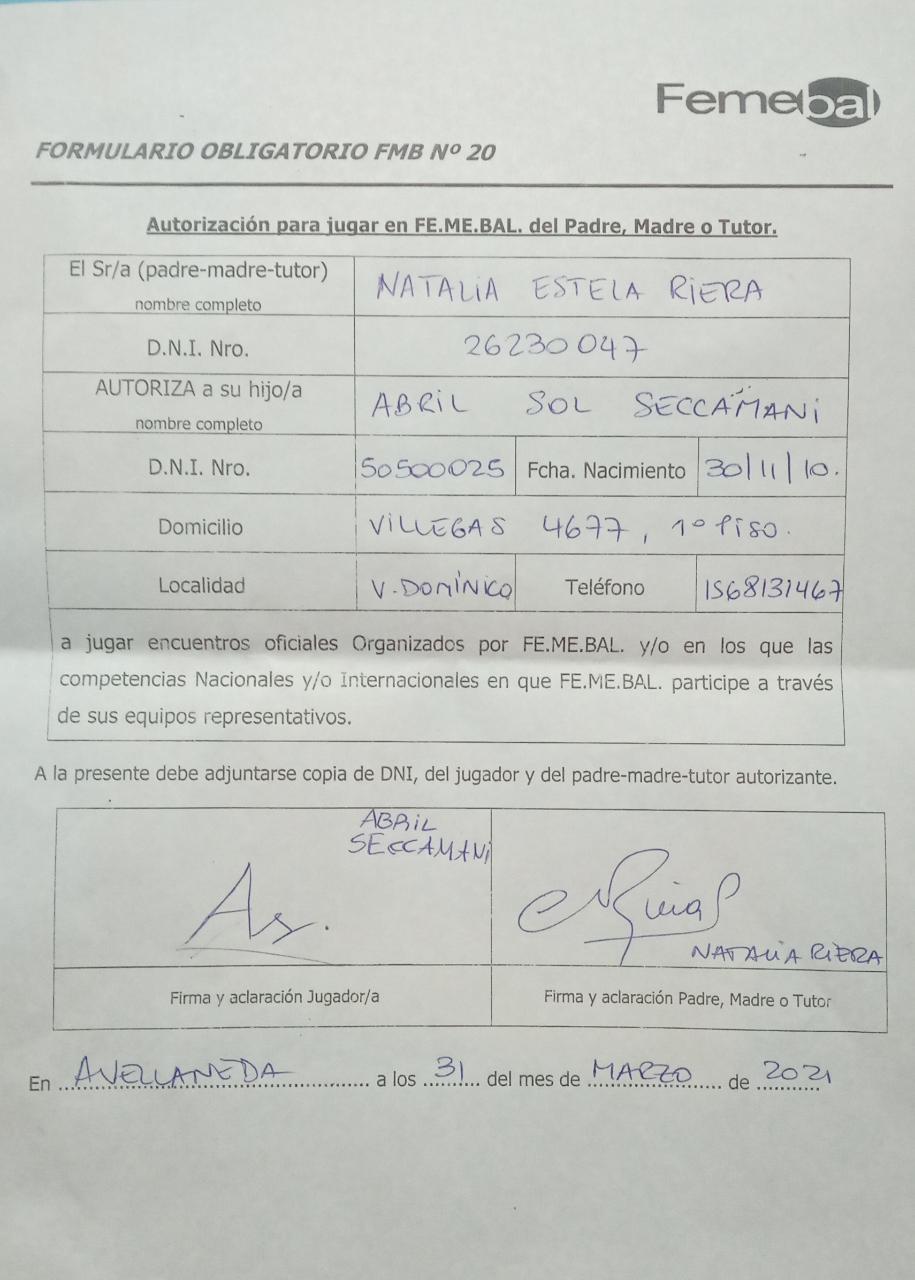 Femebal
FORMULARIO OBLIGATORIO FMB Nº 20
Autorización para jugar en FE.ME.BAL. del Padre, Madre o Tutor.
El Sr/a (padre-madre-tutor) NATALIA ESTELA RIERA
nombre completo
D.N.I. Nro. 26230047
AUTORIZA a su hijo/a ABRIL SOL SECCAMANI
nombre completo
D.N.I. Nro. 50500025 Fcha. Nacimiento 30/11/10.
Domicilio VILLEGAS 4677, 1º PISO.
Localidad V. DOMÍNICO Teléfono 1568131467
a jugar encuentros oficiales Organizados por FE.ME.BAL. y/o en los que las
competencias Nacionales y/o Internacionales en que FE.ME.BAL. participe a través
de sus equipos representativos.
A la presente debe adjuntarse copia de DNI, del jugador y del padre-madre-tutor autorizante.
ABRIL
SECCAMANI
NATALIA RIERA
Firma y aclaración Jugador/a Firma y aclaración Padre, Madre o Tutor
En AVELLANEDA a los 31 del mes de MARZO de 2021